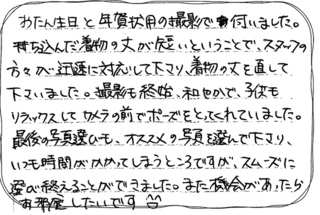 おたん生日と年賀状用の撮影で付いました。
持ち込んだ着物の丈が短いということで、スタッフの
方々が迅速に対応して下さり、着物の丈を直して
下さいました。撮影も終始、和やかで、子供も
リラックスしてカメラの前でポーズをとってくれていました。
最後の写真選びも、オススメの写真を選んで下さり、
いつも時間がかかってしまうところですが、スムーズに
選び終えることができました。また機会があったら
お願いしたいです